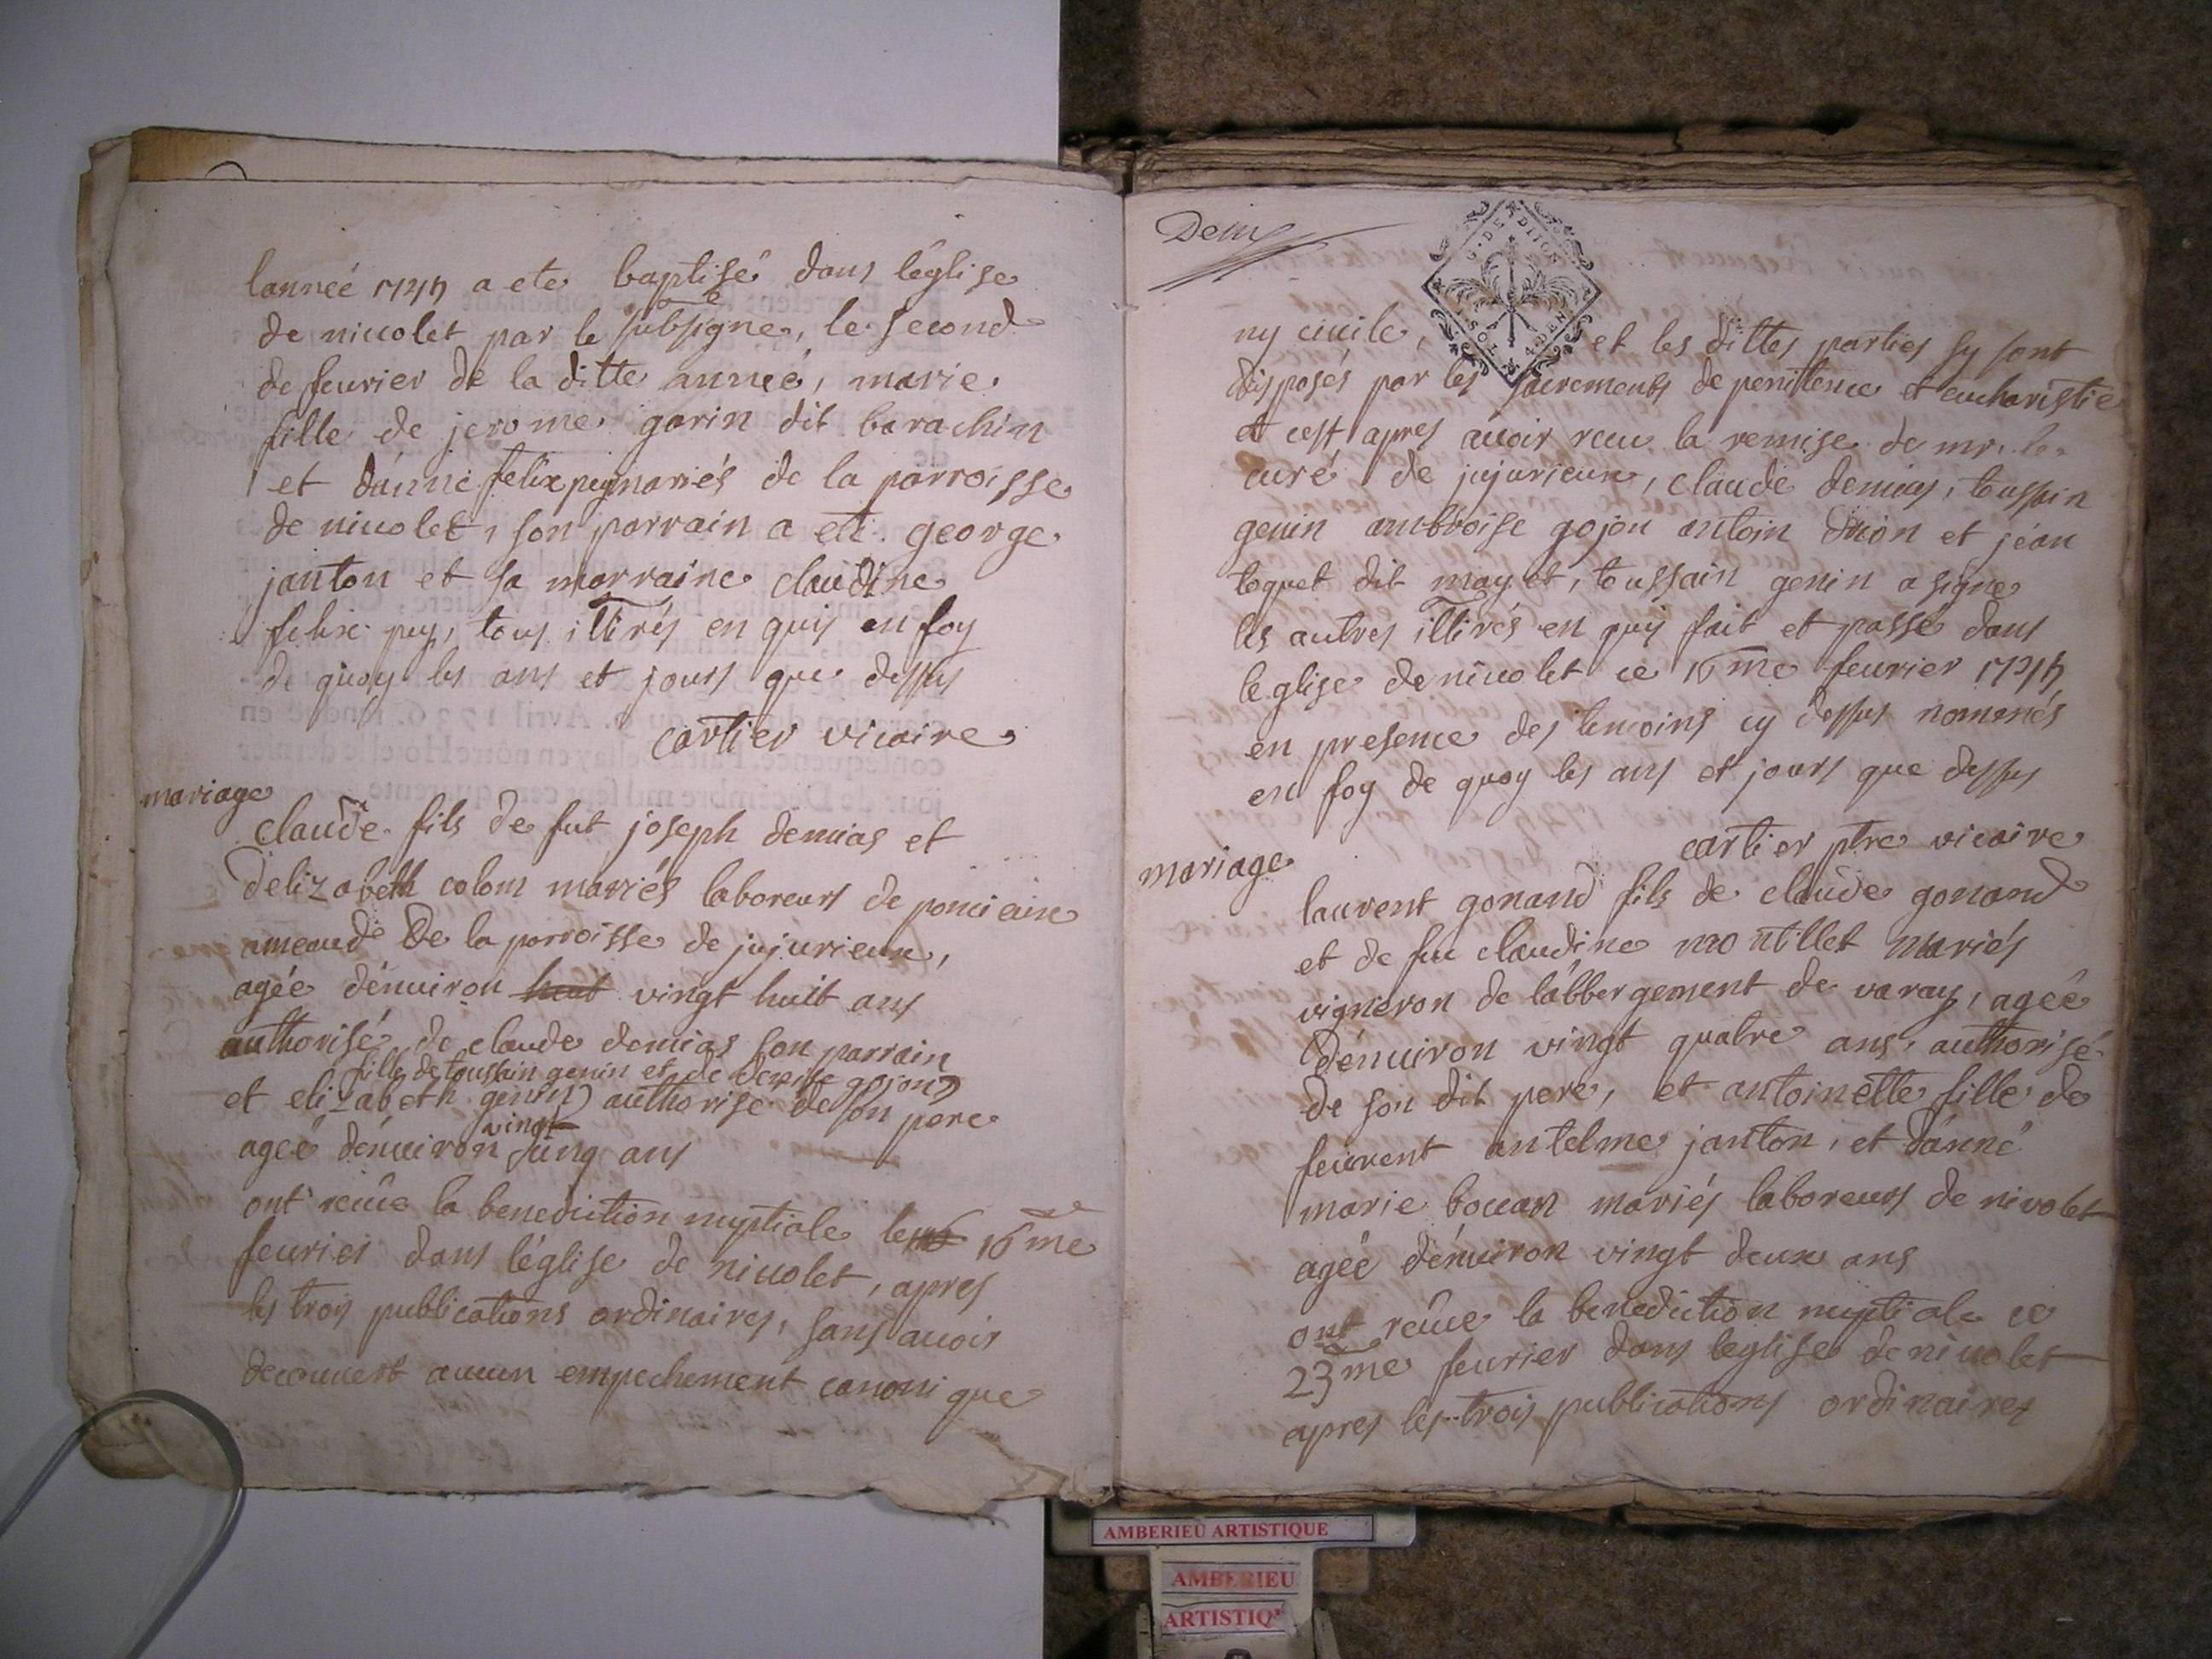 lanneé a ete baptisé dans léglise
de niuolet par le subsigne, le second
de feurier de la ditte anneé, marie
fille de jerome garin dit barachin
et dánne felix puy mariés de la parroisse
de niuolet, son parrain a ete george
janton et sa marraine claudine
felix puy, tous illirés en quis en foy
de quoy les ans et jours que dessus
cartier vicaire
mariage
claude fils de fut joseph demias et
delizabeth colom mariés laboreurs de
ameaud de la parroisse de jujurieux,
agée dénuiron huit vingt huit ans
authorisé de claude demias son parrain
fille de toussain genin et de denise gojon
et elizabeth genin authorise de son pere
vingt
ageé dénuiron sinq ans
ont reçue la benediction nuptiale le 16me
feurier dans léglise de niuolet, apres
les trois publications ordinaires, sans auoir
decouuert aucun empechement canonique
Deux
G. DE DIJON
ny ciuile, et les dittes parties sy sont
disposés par les sacrements de penitence et eucharistie
et cest apres auoir receu la remise de mr. le
curé de jujurieux, claude demias, toussain
genin ambroise gojon antoin et jéan
toquet dit mayet, toussain genin a signe
les autres illirés en quis fait et passé dans
leglise de niuolet ce 16me feurier
en presence des temoins cy dessus nommés
en foy de quoy les ans et jours que dessus
cartier ptre vicaire
mariage
laurent gonand fils de claude gonand
et de fue claudine montillet mariés
vigneron de lábbergement de varay, ageé
dénuiron vingt quatre ans, authorisé
de son dit pere, et antoinette fille de
feurent antelme janton, et dánne
marie bouan mariés laboreurs de nivolet
ageé dénuiron vingt deux ans
ont reçue la benediction nuptiale ce
23me feurier dans leglise de niuolet
apres les trois publications ordinaires
AMBERIEU ARTISTIQUE
AMBERIEU
ARTISTIQ